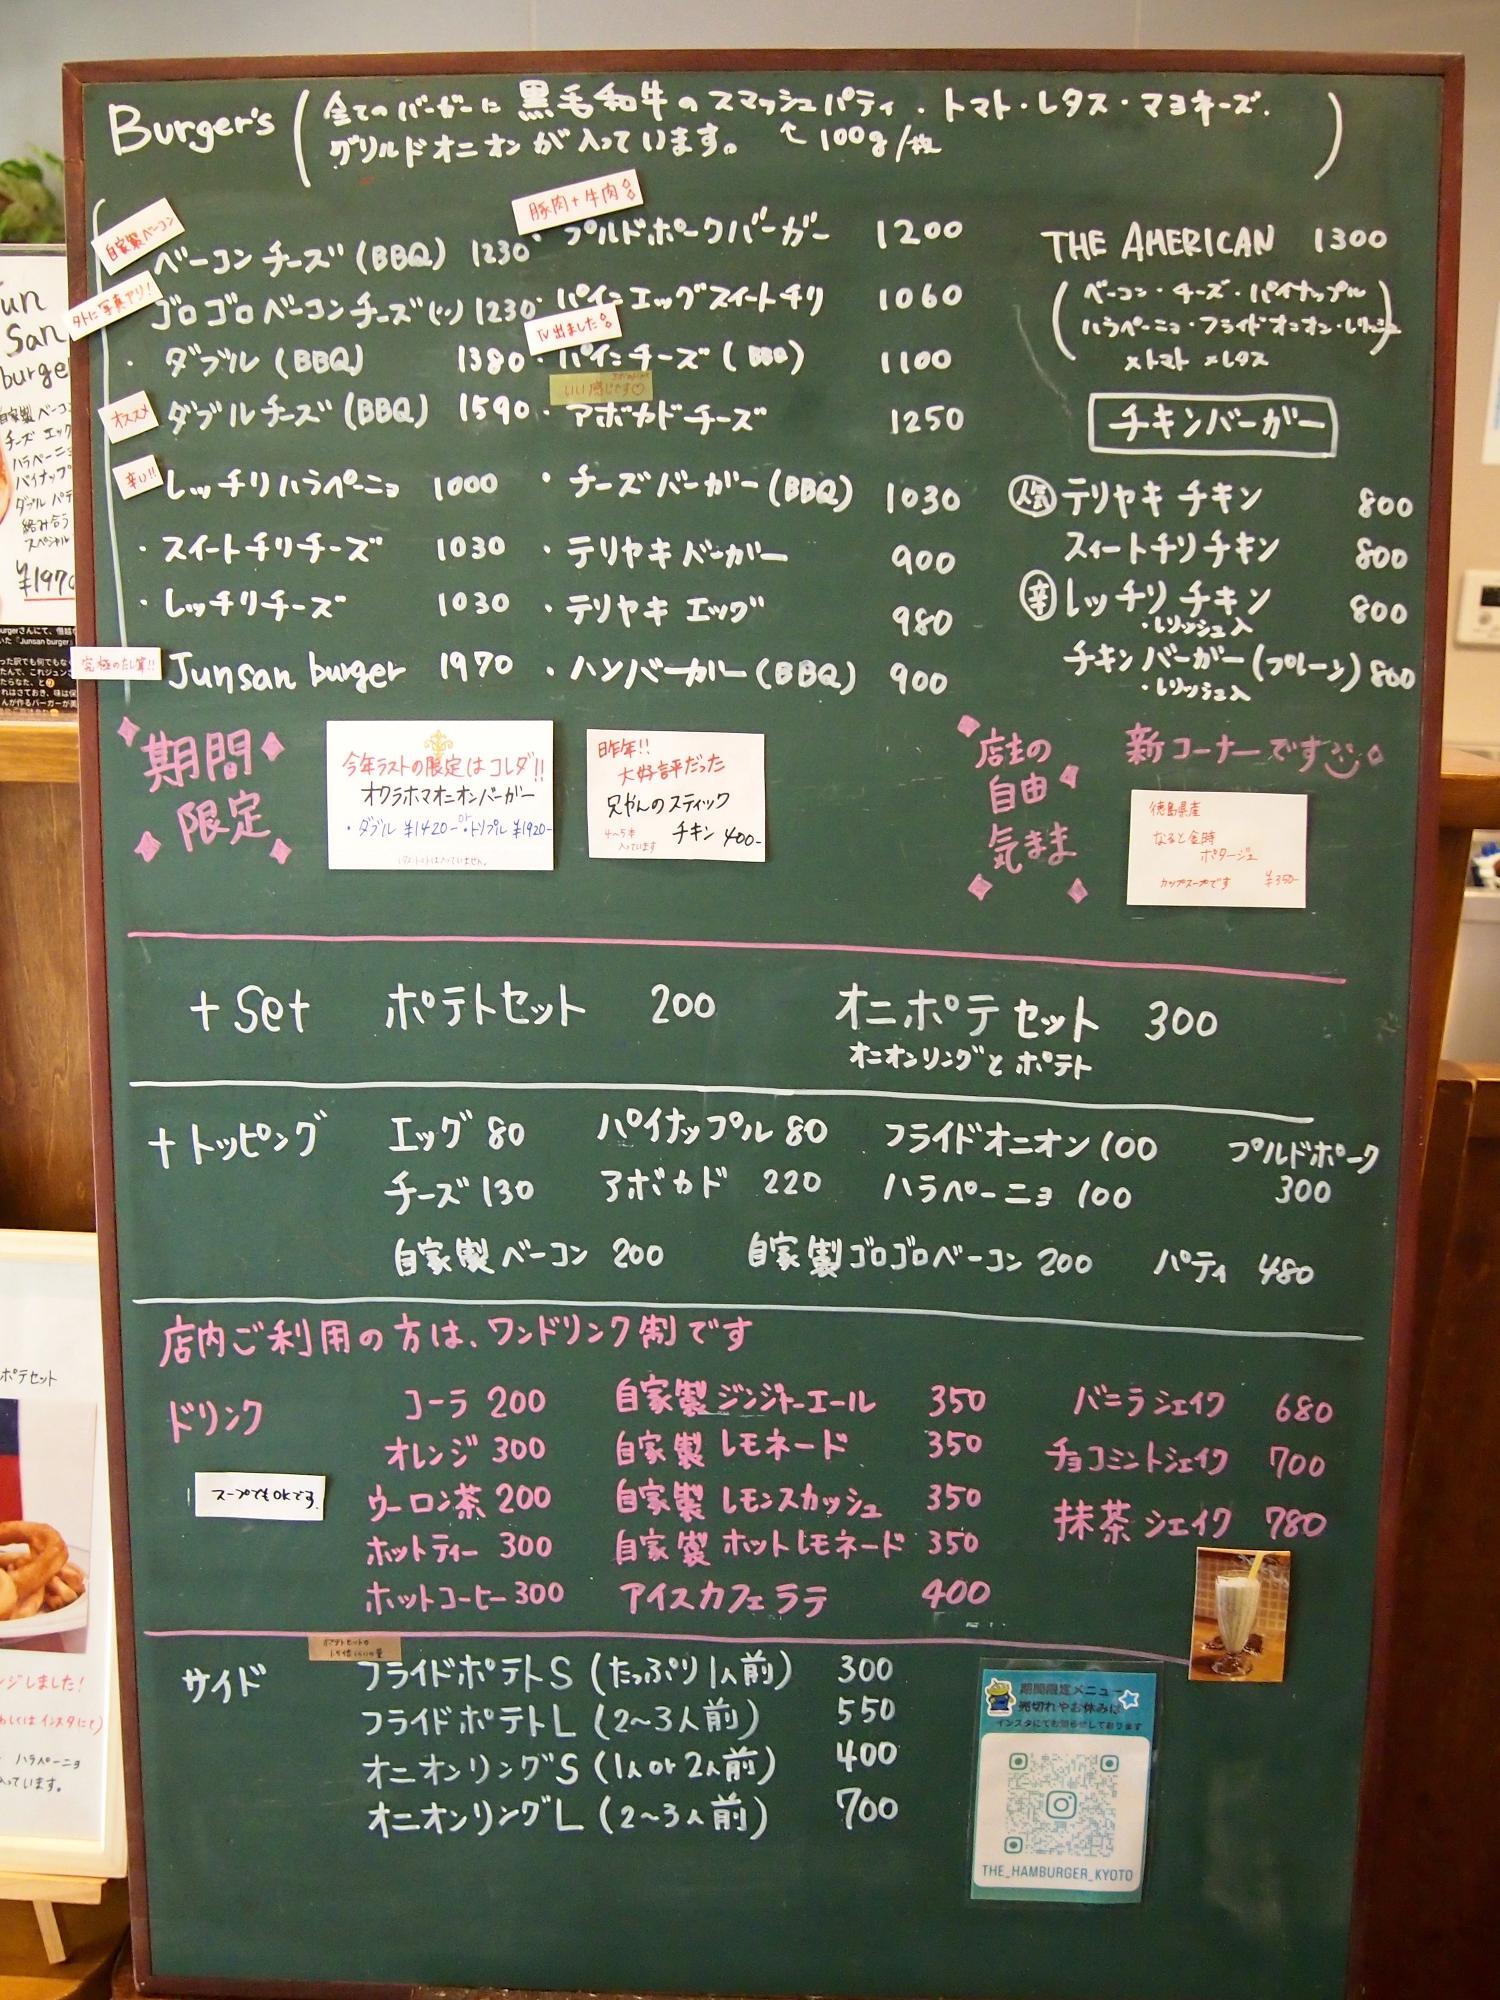 Burger's
全てのバーガーに 黒毛和牛のスマッシュパティ・トマト・レタス・マヨネーズ.
グリルドオニオンが入っています。 100g/枚
自家製ベーコン
ベーコンチーズ(BBQ) 1230
外に写真アリ!
ゴロゴロベーコンチーズ 1230
・ダブル(BBQ) 1380
オススメ
ダブルチーズ(BBQ) 1590
辛い!!
レッチリハラペーニョ 1000
・スイートチリチーズ 1030
・レッチリチーズ 1030
究極のたし算!!
Junsan burger 1970
豚肉+牛肉
・プルドポークバーガー 1200
・パインエッグスイートチリ 1060
TV出ました
・パインチーズ(BBQ) 1100
いい感じです♡
・アボカドチーズ 1250
・チーズバーガー(BBQ) 1030
・テリヤキバーガー 900
・テリヤキエッグ 980
・ハンバーガー(BBQ) 900
THE AMERICAN 1300
(ベーコン・チーズ・パイナップル
ハラペーニョ・フライドオニオン・レリッシュ)
×トマト ×レタス
チキンバーガー
人気 テリヤキチキン 800
スイートチリチキン 800
辛 レッチリチキン 800
・レリッシュ入
チキンバーガー(プレーン) 800
・レリッシュ入
期間
限定
今年ラストの限定はコレダ!!
オクラホマオニオンバーガー
・ダブル ¥1420- or ・トリプル ¥1920-
昨年!!
大好評だった
兄やんのスティック
チキン 400-
4〜5本
入っています
店主の
自由
気まま
新コーナーです
徳島県産
なると金時
ポタージュ
カップスープです ¥350-
+Set ポテトセット 200 オニポテセット 300
オニオンリングとポテト
+トッピング エッグ 80 パイナップル 80 フライドオニオン 100 プルドポーク
チーズ 130 アボカド 220 ハラペーニョ 100 300
自家製ベーコン 200 自家製ゴロゴロベーコン 200 パティ 480
店内ご利用の方は、ワンドリンク制です
ドリンク
スープでもOKです.
コーラ 200
オレンジ 300
ウーロン茶 200
ホットティー 300
ホットコーヒー 300
自家製ジンジャーエール 350
自家製レモネード 350
自家製レモンスカッシュ 350
自家製ホットレモネード 350
アイスカフェラテ 400
バニラシェイク 680
チョコミントシェイク 700
抹茶シェイク 780
サイド
ポテトセットの
フライドポテトS(たっぷり1人前) 300
フライドポテトL(2〜3人前) 550
オニオンリングS(1人or2人前) 400
オニオンリングL(2〜3人前) 700
期間限定メニュー
売切れやお休みは
インスタにてお知らせしております
THE_HAMBURGER_KYOTO
Jun
San
burge
自家製ベーコ
チーズ エッグ
ハラペーニョ
パイナップ
ダブル パテ
絡み合う
スペシャル
¥1970
ポテセット
ンジしました!
わしくはインスタにて)
ハラペーニョ
入っています。